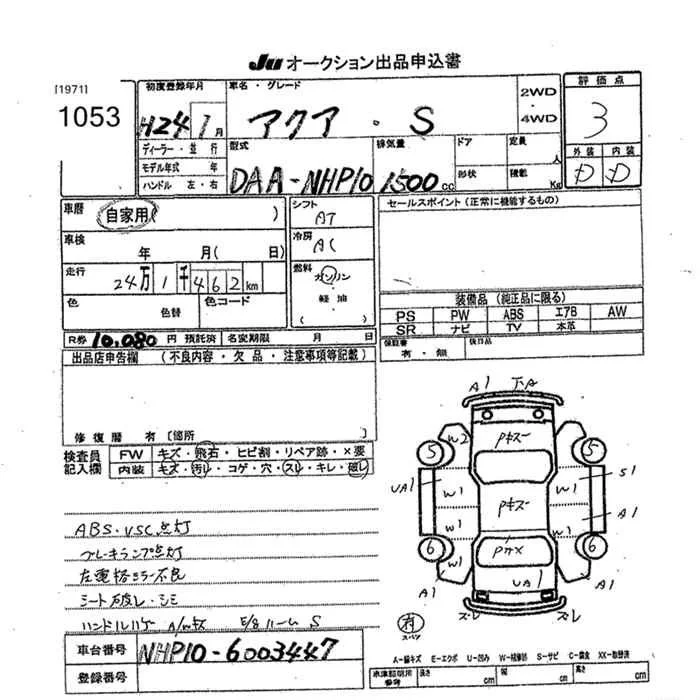 Ju オークション出品申込書
[1971]
1053
初度登録年月
H24 1月
車名・グレード
アクア・S
2WD・4WD
評価点
3
ディーラー・並行
モデル年式 年
ハンドル 左・右
型式
DAA-NHP10
排気量
1500 cc
ドア
定員 人
形状
積載 Kg
外装 内装
D D
車歴
自家用( )
シフト
AT
セールスポイント(正常に機能するもの)
車検
年 月(日)
冷房
AC
走行
24万1千462km
燃料
ガソリン
軽油
( )
色
色替
色コード
装備品(純正品に限る)
PS PW ABS エアB AW
SR ナビ TV 本革
R券 10,080 円 預託済 名変期限 月 日
保証書 有・無
後日品
出品店申告欄 (不良内容・欠品・注意事項等記載)
修復歴 有〔箇所 〕
検査員記入欄
FW キズ・飛石・ヒビ割・リペア跡・×要
内装 キズ・汚レ・コゲ・穴・スレ・キレ・破レ
A1
W2
Pキズー
5
5
UA1
W1
W1
S1
W1
Pキズー
W1
A1
6
6
A1
UA1
A1
ズレ
ズレ
ABS・VSC点灯
ブレーキランプ点灯
左電格ミラー不良
シート破レ・シミ
ハンドルハゲ
S
車台番号
NHP10-6003447
登録番号
A-線キズ E-エクボ U-凹み W-補修跡 S-サビ C-腐食 XX-取替済
車庫証明用参考
長さ cm
幅 cm
高さ cm